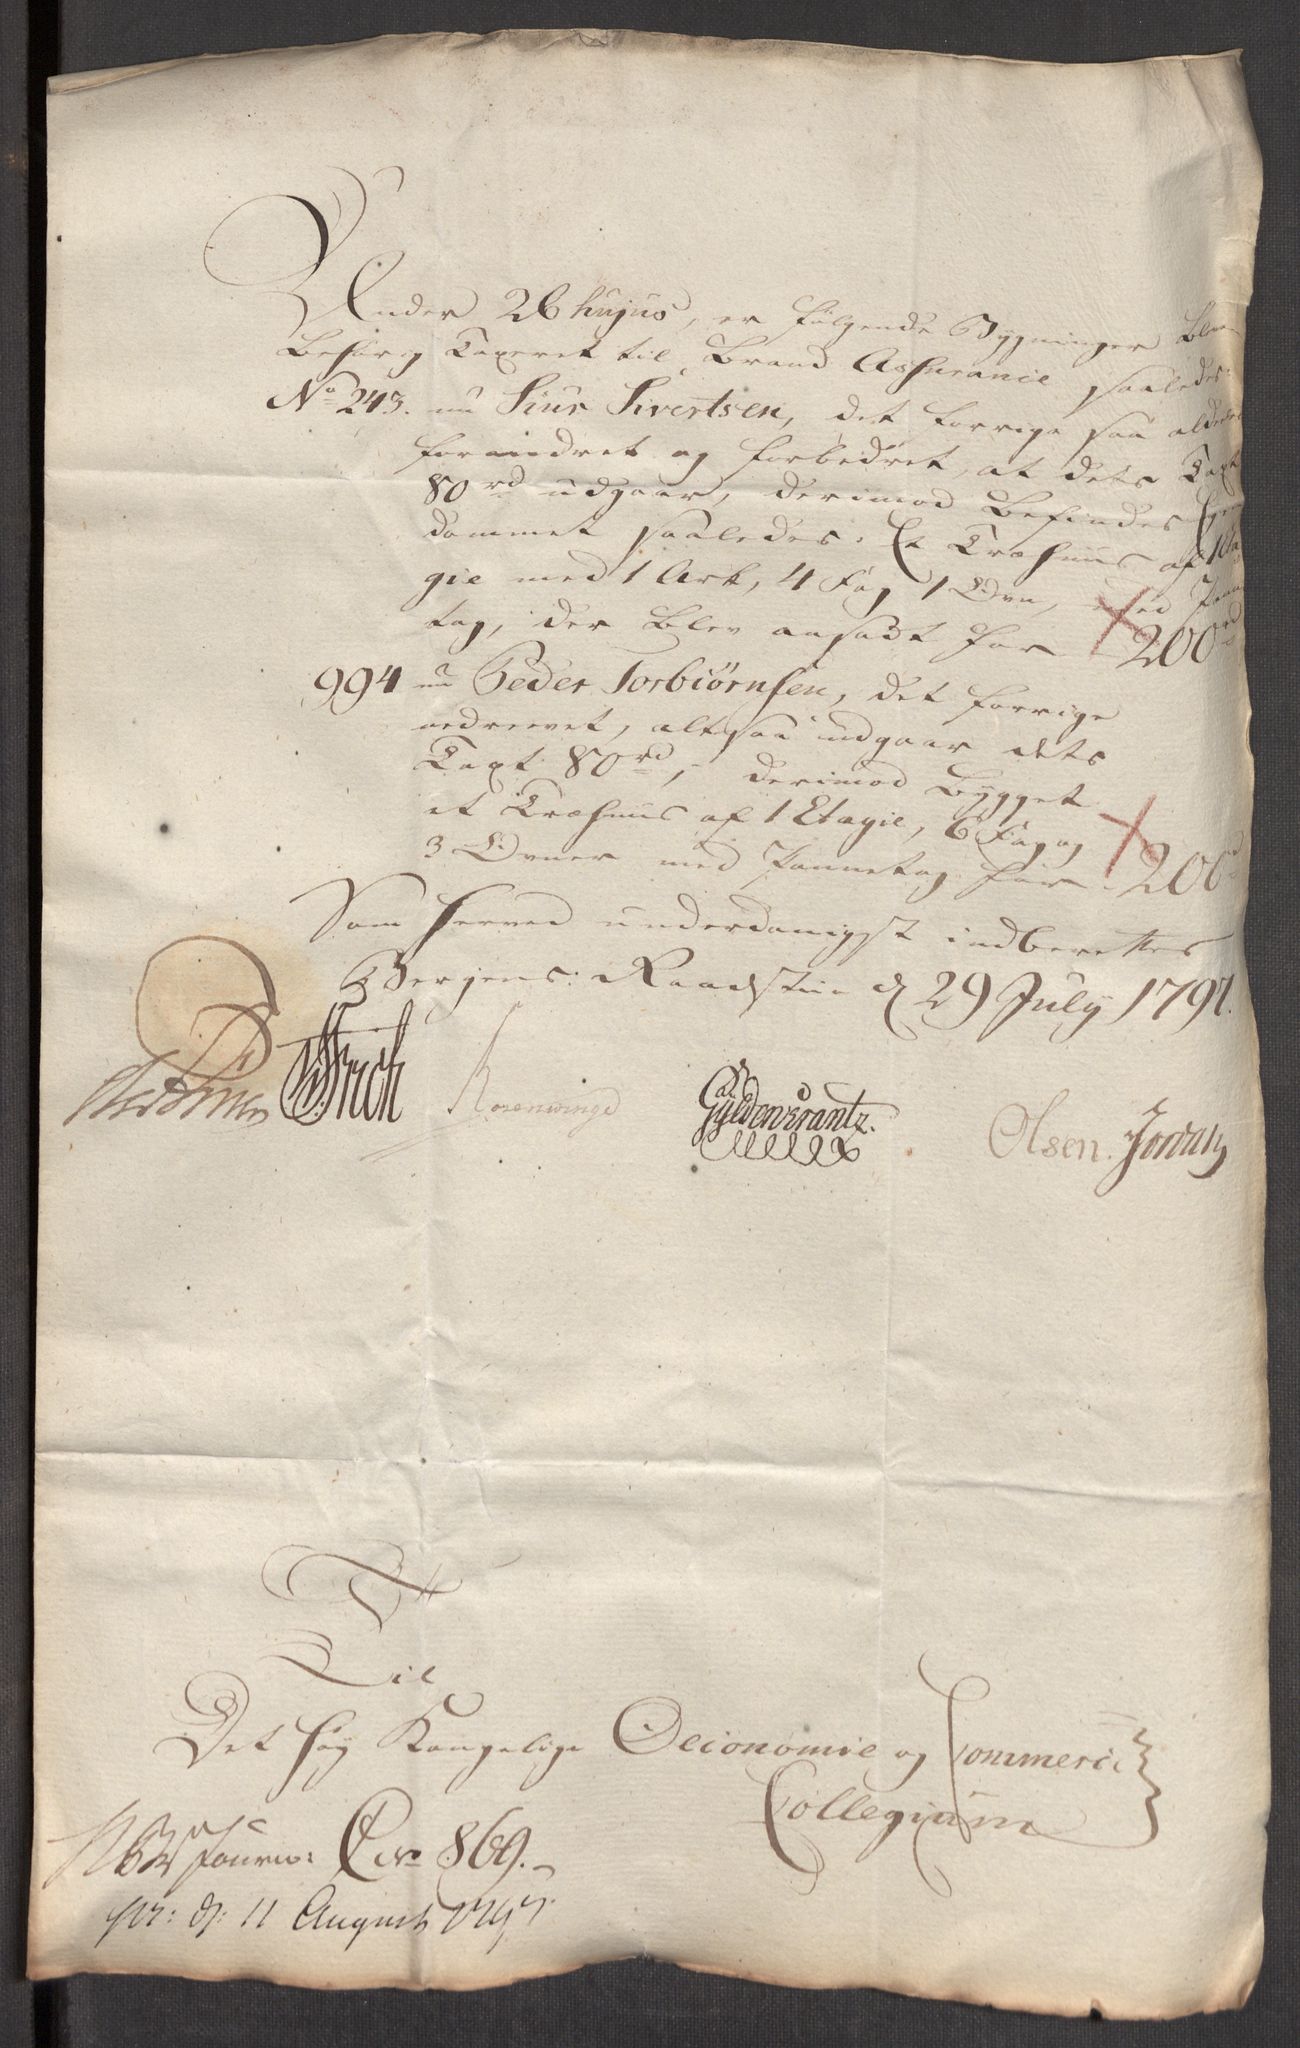 Under 26 hujus, er følgende Bygninger blevne
behørig Taxeret til Brand Assurance saaledes:
No 243. nu Siur Sivertsen, det forrige saa aldeles
forandret og forbedret, at dets Taxt
80 rd udgaar, derimod befindes Eyen
dommet saaledes: Et Træhuus af 1 Eta
gie med 1 Ark, 4 Fag 1 Ovn, med Panne
tag, der blev ansadt for 200 rd
994 nu Peder Torbiørnsen, det forrige
nedrevet, altsaa udgaar dets
Taxt 80 rd, derimod bygget
et Træhuus af 1 Etagie, 6 Fag og
3 Ovner med Pannetag for 200 rd
Som herved underdanigst indberettes
Bergens Raadstue d 29 July 1797.
Rosenvinge Gyldenkrantz. Olsen.
Til
Det høy Kongelige Oeconomie og Commerce
Collegium
No 869.
d: 11 August 1797